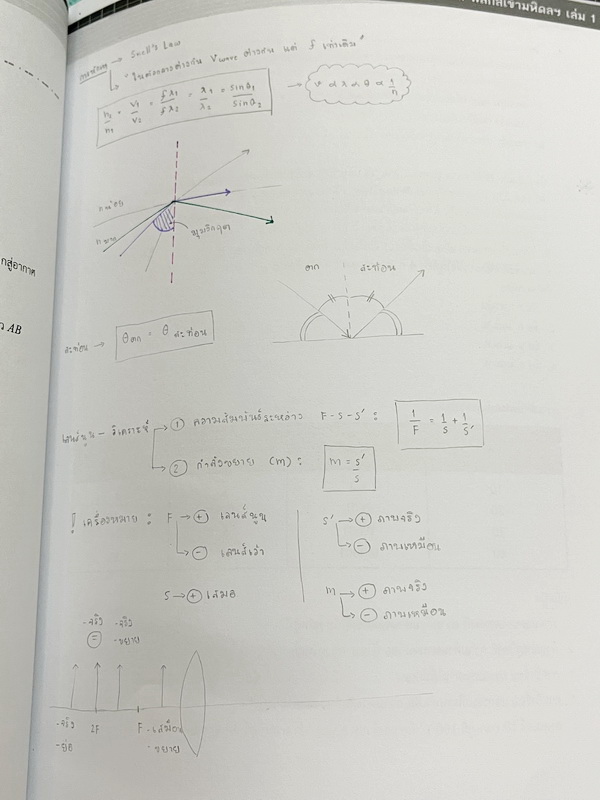 ฟิสิกส์เข้ามหิดลฯ เล่ม 1
กสู่อากาศ
AB
การหักเห → Snell's Law
" ในตัวกลางต่างกัน Vwave ต่างกัน แต่ f เท่าเดิม "
n2/n1 = v1/v2 = fλ1/fλ2 = λ1/λ2 = sinθ1/sinθ2
→ v ∝ λ ∝ θ ∝ 1/n
n น้อย
n มาก
มุมวิกฤต
ตก
สะท้อน
สะท้อน → θตก = θสะท้อน
เลนส์นูน - วิเคราะห์
① ความสัมพันธ์ระหว่าง F - s - s' : 1/F = 1/s + 1/s'
② กำลังขยาย (m) : m = s'/s
เครื่องหมาย : F → + เลนส์นูน
- เลนส์เว้า
s → + เสมอ
s' → + ภาพจริง
- ภาพเหมือน
m → + ภาพจริง
- ภาพเหมือน
-จริง -จริง
= -ขยาย
-จริง 2F F -เสมือน
-ย่อ -ขยาย